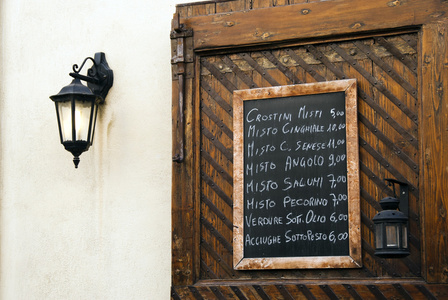 CROSTINI MISTI 5,00
MISTO CINGHIALE 10,00
MISTO C. SENESE 11,00
MISTO ANGOLO 9,00
MISTO SALUMI 7,00
MISTO PECORINO 7,00
VERDURE SOTT. OLIO 6,00
ACCIUGHE SOTTOPESTO 6,00